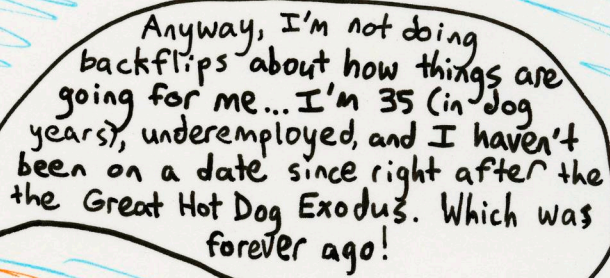 Anyway, I'm not doing
backflips about how things are
going for me... I'm 35 (in dog
years), underemployed, and I haven't
been on a date since right after the
the Great Hot Dog Exodus. Which was
forever ago!